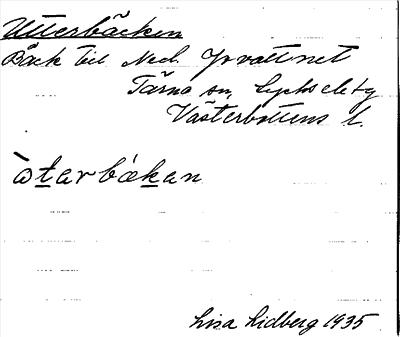 Utterbäcken
Bäck till Ned. Jovattnet
Tärna sn, Lycksele tg
Västerbottens l.
àtarbäkan
Lisa Lidberg 1935